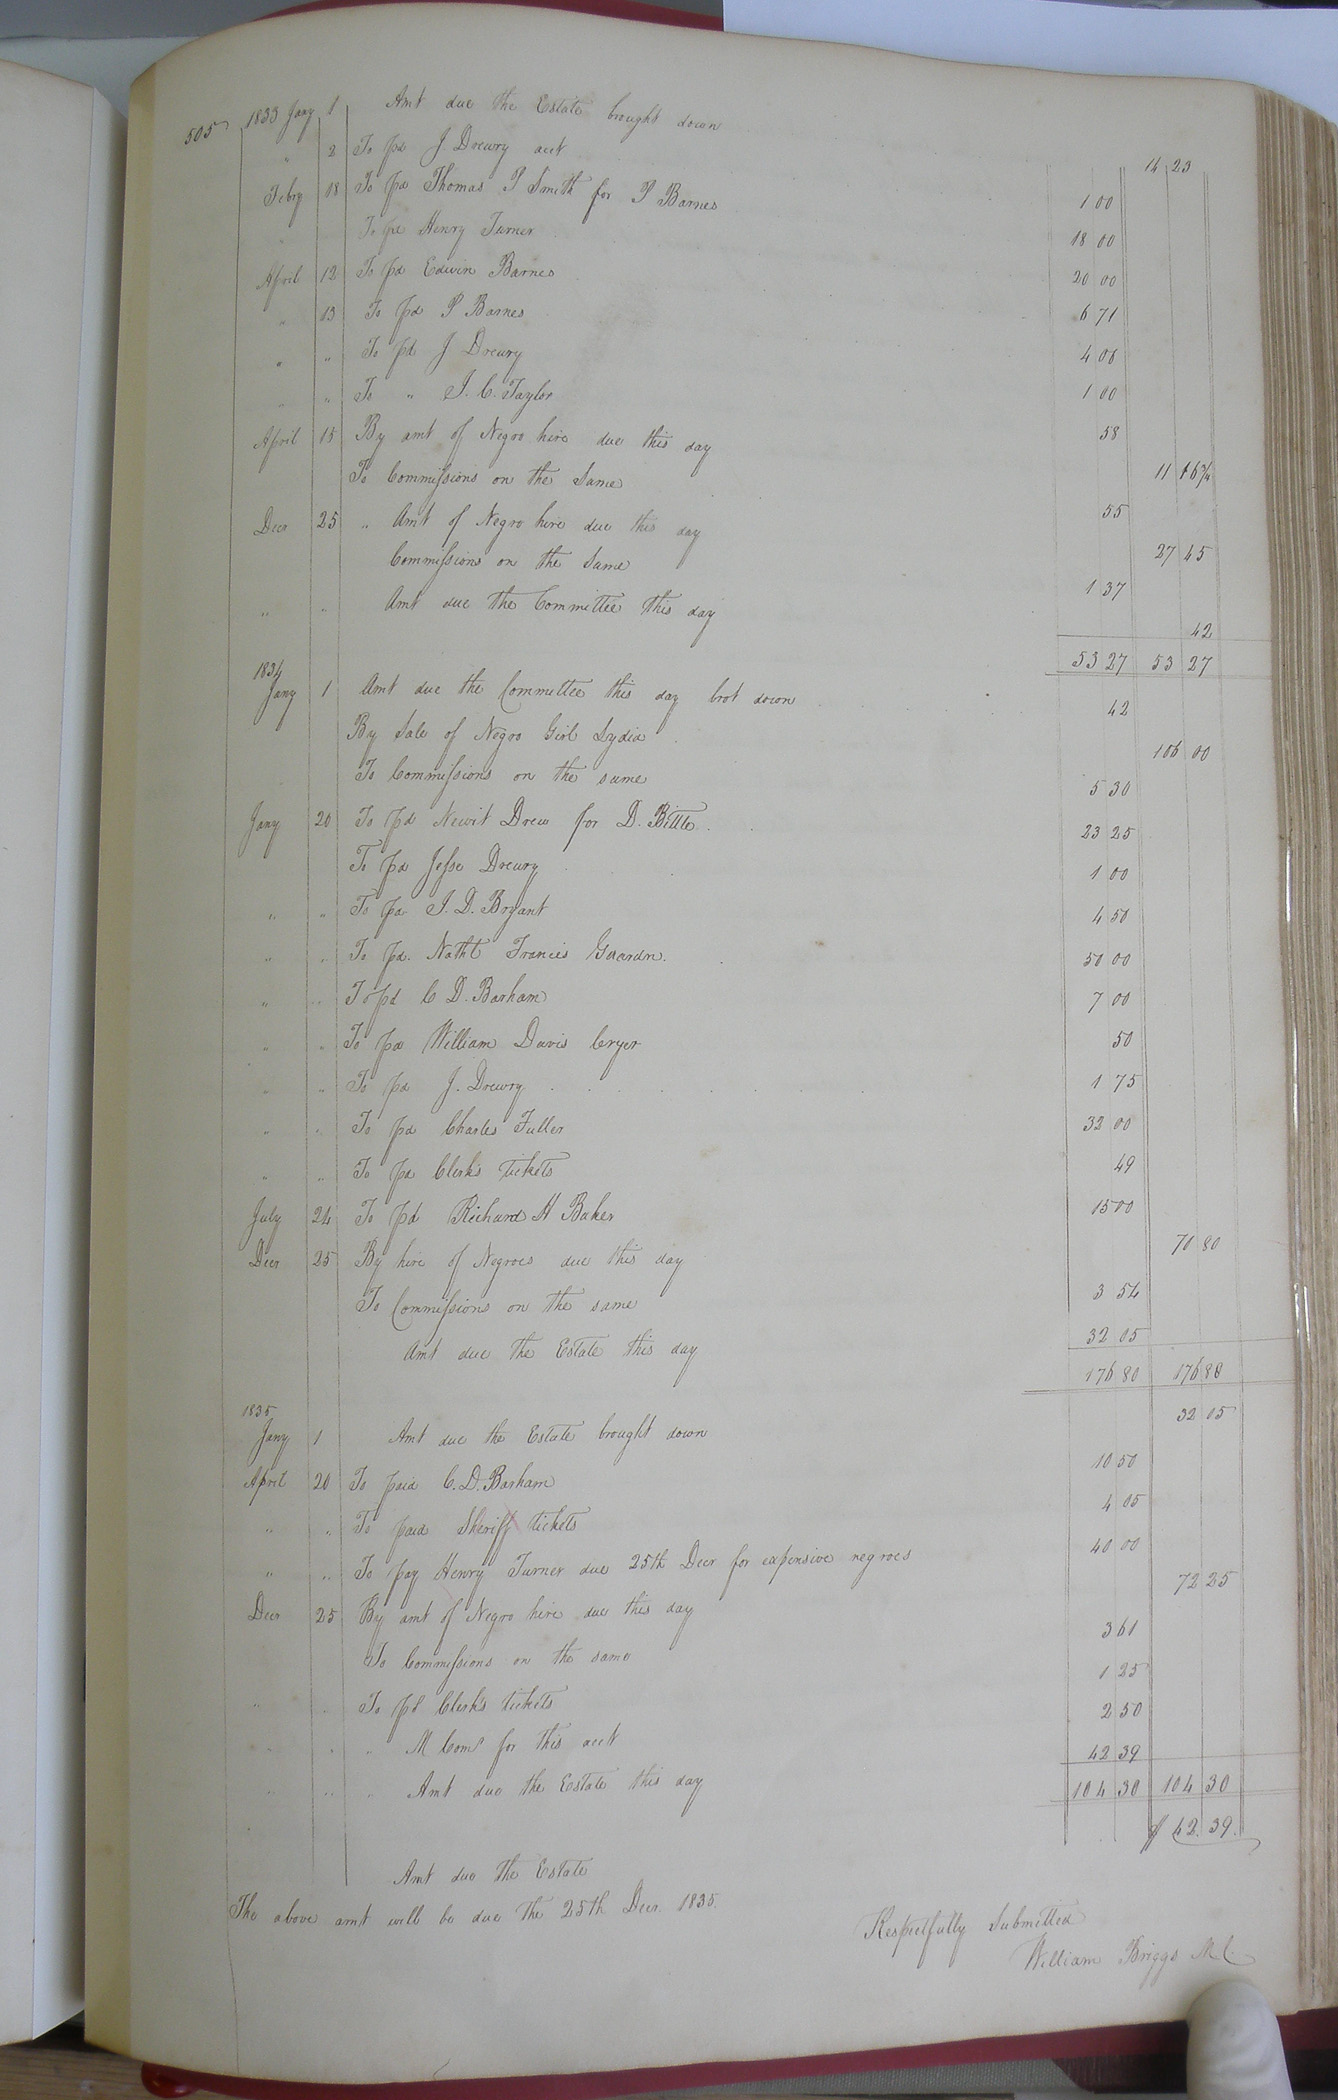 505 1833 Jany 1 Amt due the Estate brought down 14 23
" 2 To pd J Drewry acct 1 00
Febry 18 To pd Thomas P Smith for P Barnes 18 00
" To pd Henry Turner 20 00
April 12 To pd Edwin Barnes 6 71
" 13 To pd P Barnes 4 06
" " To pd J Drewry 1 00
" " To " J. C. Taylor 58
April 15 By amt of Negro hire due this day 11 16¾
To Commissions on the Same 55
Decr 25 " Amt of Negro hire due this day 27 45
Commissions on the Same 1 37
" " Amt due the Committee this day 42
53 27 53 27
1834
Jany 1 Amt due the Committee this day brot down 42
By Sale of Negro Girl Lydia 106 00
To Commissions on the same 5 30
Jany 20 To pd Newit Drew for D. Bittle 23 25
To pd Jesse Drewry 1 00
" " To pd J. D. Bryant 4 50
" " To pd. Nathl Francis Guardn. 50 00
" " To pd C D. Barham 7 00
" " To pd William Davis Cryer 50
" " To pd J. Drewry 1 75
" " To pd Charles Fuller 32 00
" " To pd Clerks tickets 49
July 24 To pd Richard H Baker 15 00
Decr 25 By hire of Negroes due this day 70 80
To Commissions on the same 3 54
Amt due the Estate this day 32 05
176 80 176 80
1835
Jany 1 Amt due the Estate brought down 32 05
April 20 To paid C. D. Barham 10 50
" " To paid Sheriff tickets 4 05
" " To pay Henry Turner due 25th Decr for expensive negroes 40 00
Decr 25 By amt of Negro hire due this day 72 25
To Commissions on the same 3 61
" " To pd Clerks tickets 1 25
" " " M Coms for this acct 2 50
" " " Amt due the Estate this day 42 39
104 30 104 30
Amt due the Estate $ 42. 39.
The above amt will be due the 25th Decr. 1835.
Respectfully Submitted
William Briggs M C.